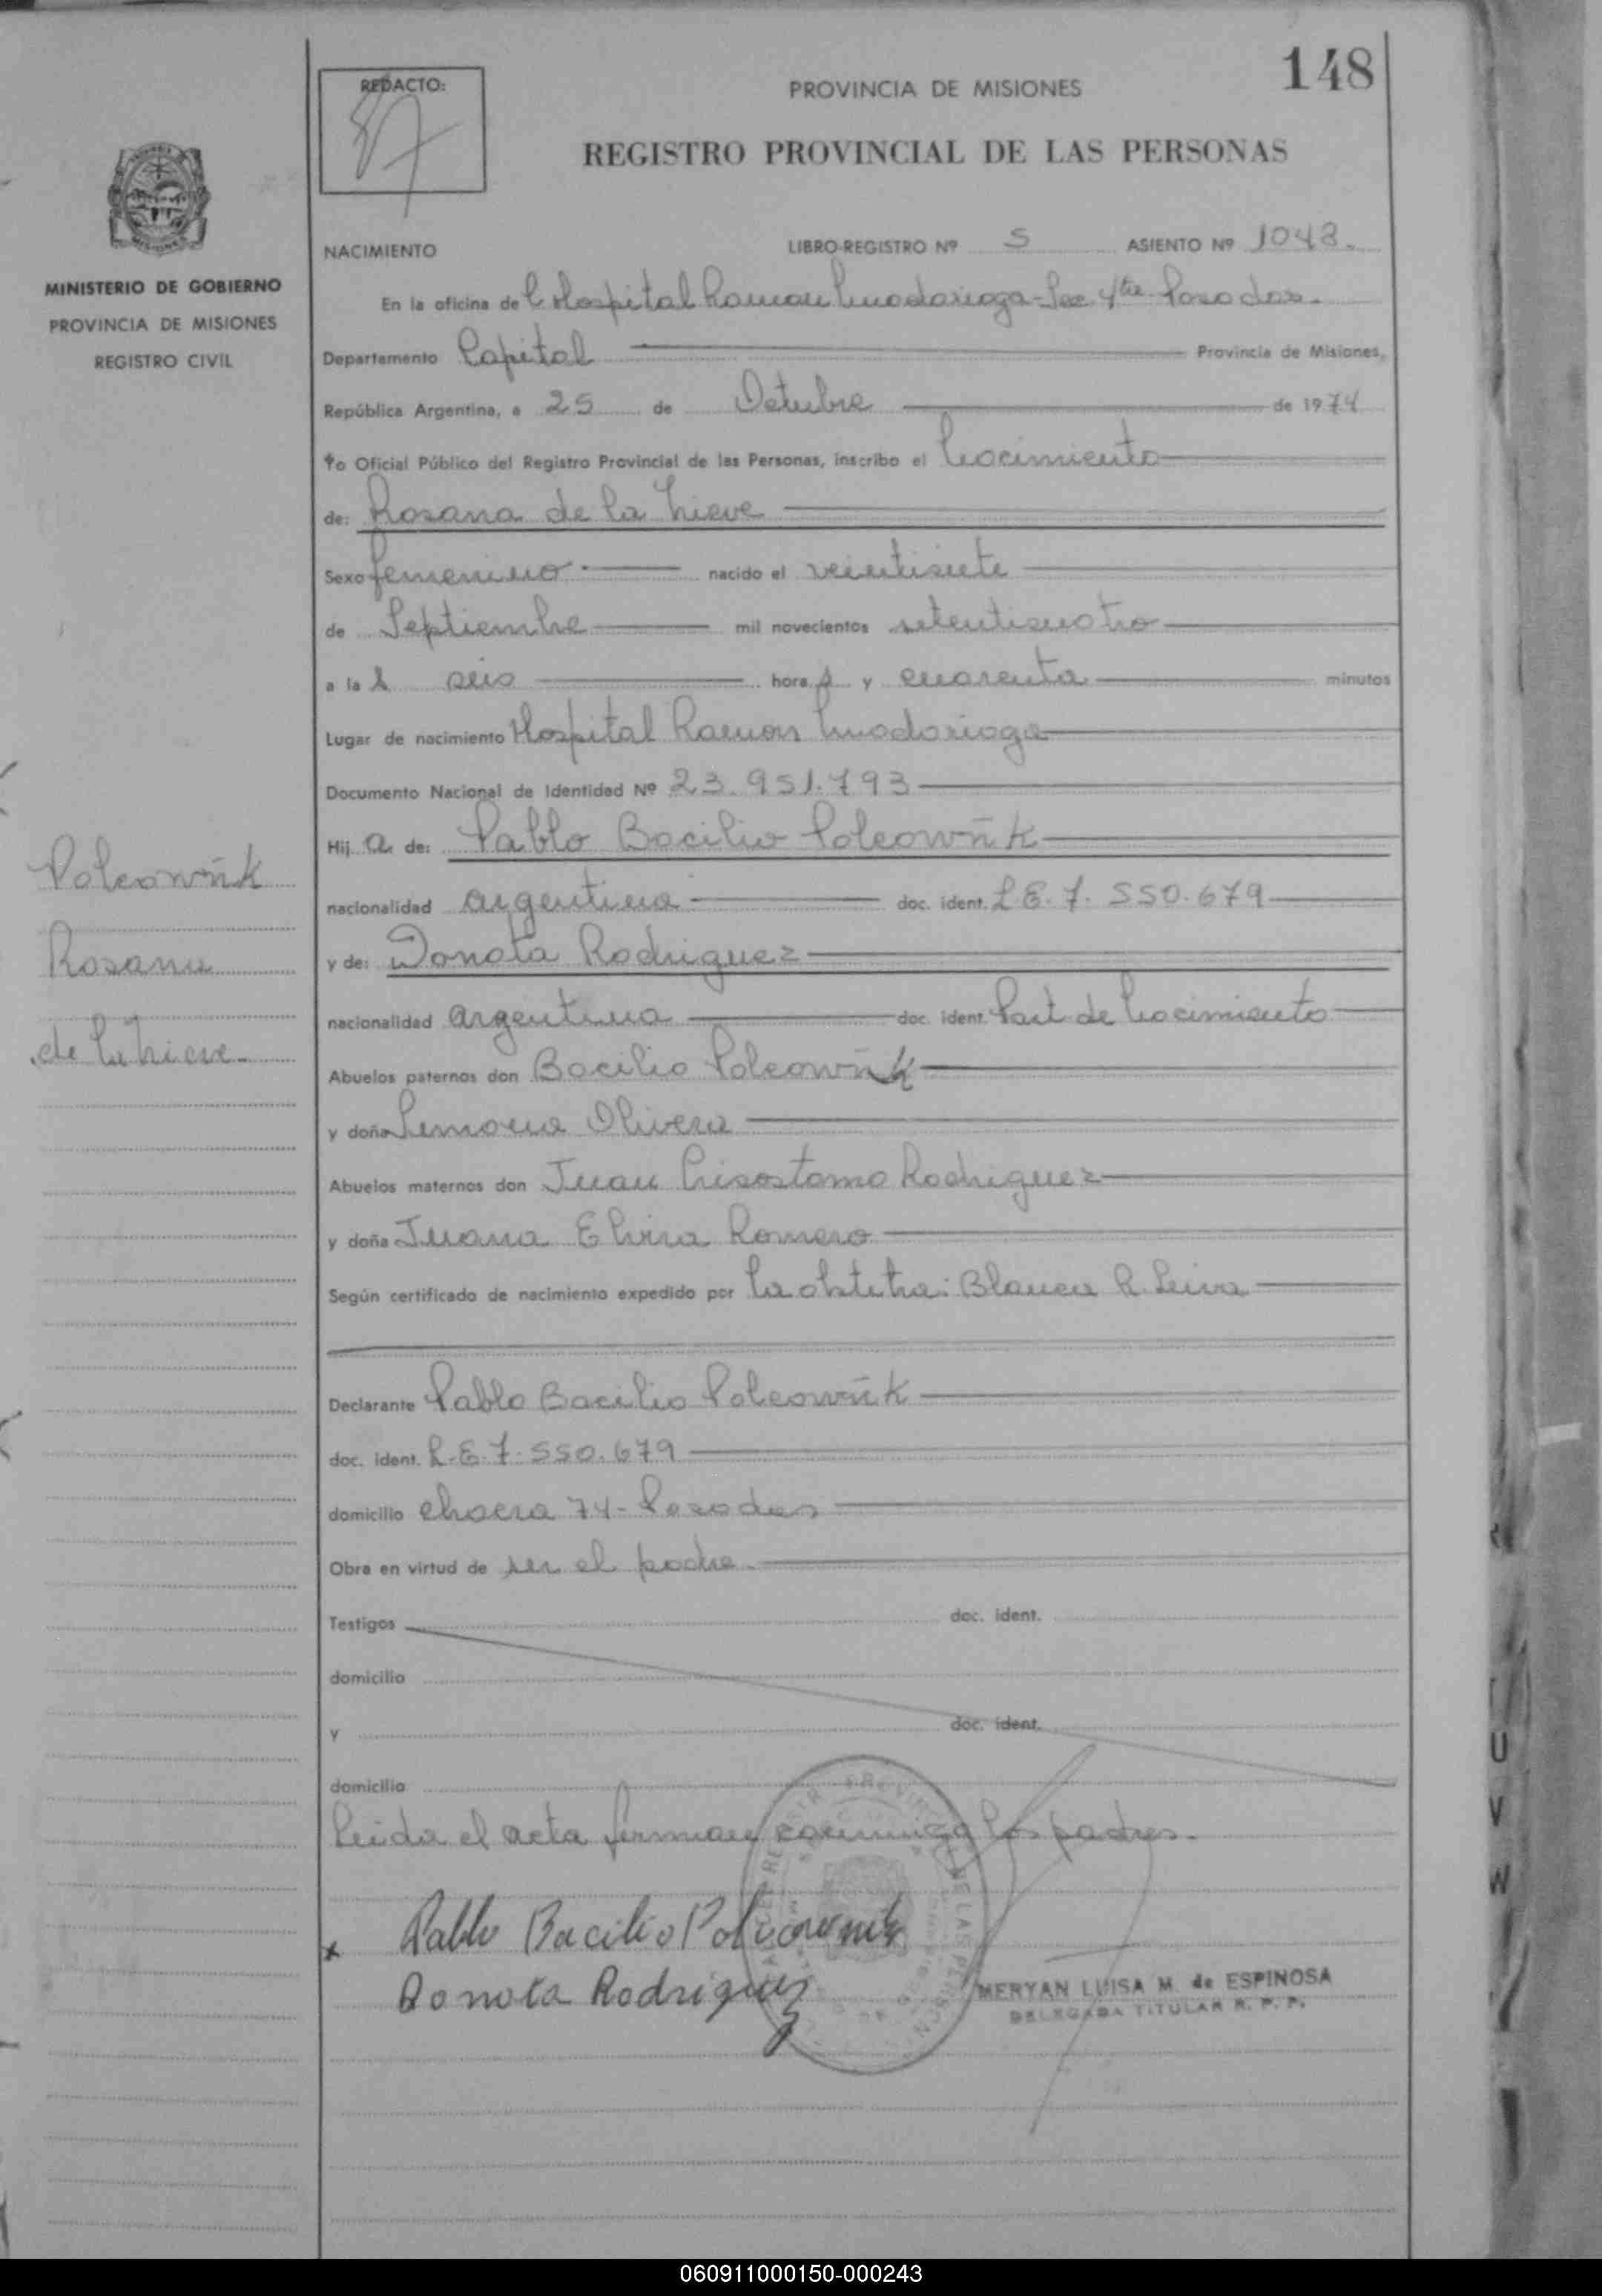 148
REDACTO:
PROVINCIA DE MISIONES
REGISTRO PROVINCIAL DE LAS PERSONAS
MINISTERIO DE GOBIERNO
PROVINCIA DE MISIONES
REGISTRO CIVIL
NACIMIENTO LIBRO-REGISTRO Nº 5 ASIENTO Nº 1048.
En la oficina del Hospital Ramon Madariaga - Sec 4ta Posadas.
Departamento Capital Provincia de Misiones,
República Argentina, a 25 de Octubre de 1974
Yo Oficial Público del Registro Provincial de las Personas, inscribo el Nacimiento
de: Rosana de la Nieve
Sexo femenino nacido el veintisiete
de Septiembre mil novecientos setentiscuatro
a las seis horas y cuarenta minutos
Lugar de nacimiento Hospital Ramon Madariaga
Documento Nacional de Identidad Nº 23.951.793
Hija de: Pablo Bacilio Polcowñk
nacionalidad argentina doc. ident. L.E. 7.550.679
y de: Donata Rodriguez
nacionalidad argentina doc. ident. Part de Nacimiento
Abuelos paternos don Bacilio Polcowñk
y doña Olivera
Abuelos maternos don Juan Crisostomo Rodriguez
y doña Juana Elvira Romero
Según certificado de nacimiento expedido por la obstetra: Blanca R. Leiva
Declarante Pablo Bacilio Polcowñk
doc. ident. L.E. 7.550.679
domicilio chacra 74 - Posadas
Obra en virtud de ser el padre.
Testigos doc. ident.
domicilio
y doc. ident.
domicilio
Leida el acta firman conmigo los padres.
Pablo Bacilio Polcowñk
Donota Rodriguez
MERYAN LUISA M. de ESPINOSA
DELEGADA TITULAR R. P. P.
Polcowñk
Rosana
de la Nieve.
U
V
W
060911000150-000243